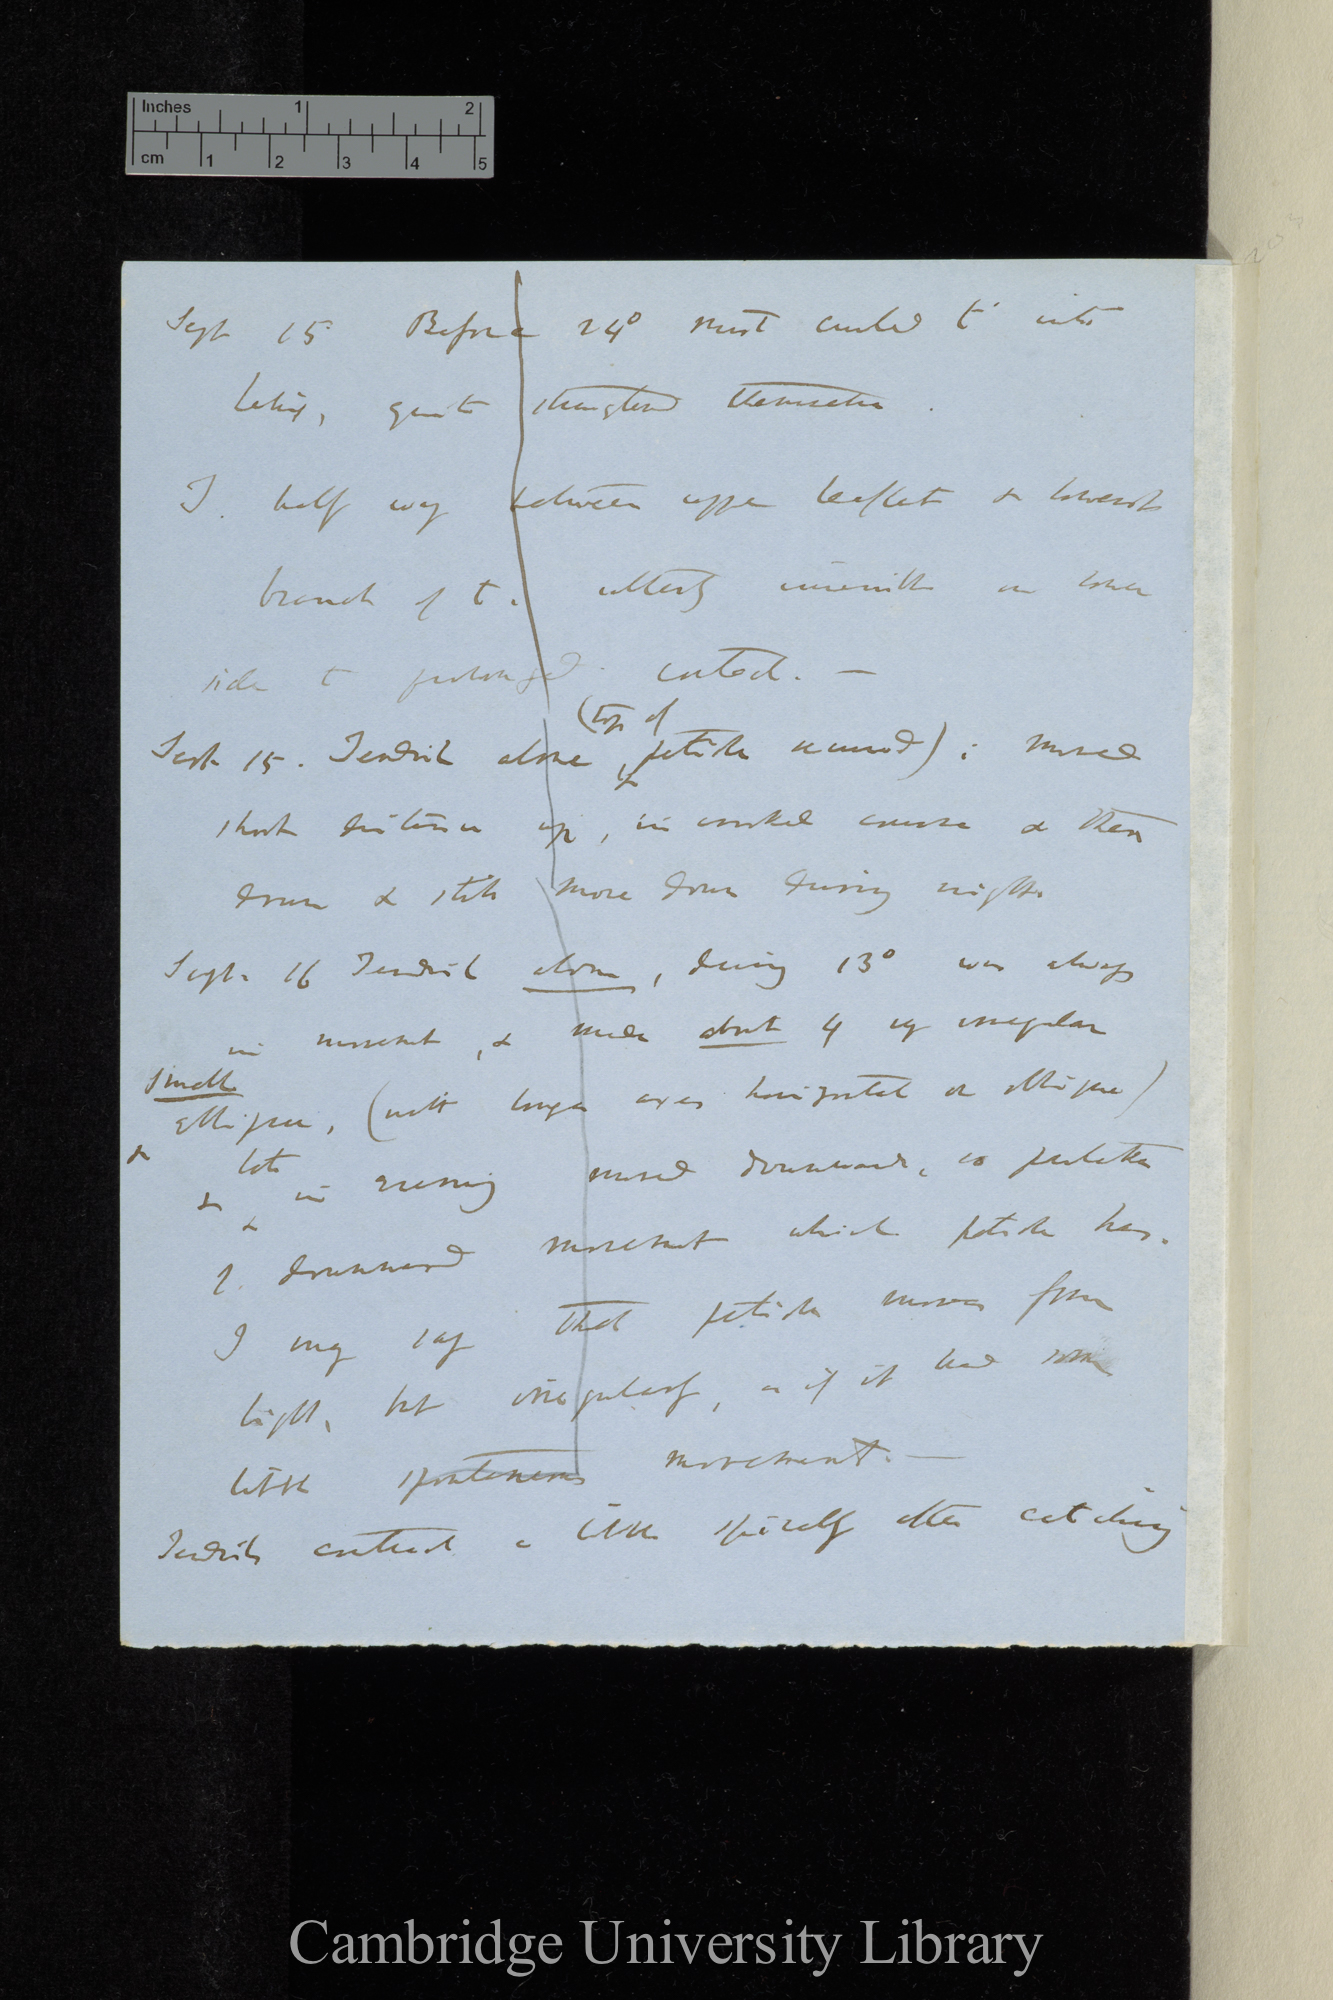 Inches 1 2
cm 1 2 3 4 5
Sept 15 Before 24° most curled t' into
helix, quite straightened themselves.
T. half way between upper leaflet & lowest
branch of t. utterly insensible on lower
side to prolonged contact. —
(top of
Sept 15. Tendril alone & petiole secured); moved
short distance up, in crooked course & then
down & still more down during night.
Sept. 16 Tendril alone, during 13° was always
in movement, & made about 4 very irregular
small
ellipses, (with longer axes horizontal or oblique)
& late in evening moved downwards, so partakes
of downward movement which petiole has.
I may say that petiole moves from
light, but irregularly, as if it had some
little spontaneous movement. —
Tendrils contract a little spirally after catching
Cambridge University Library